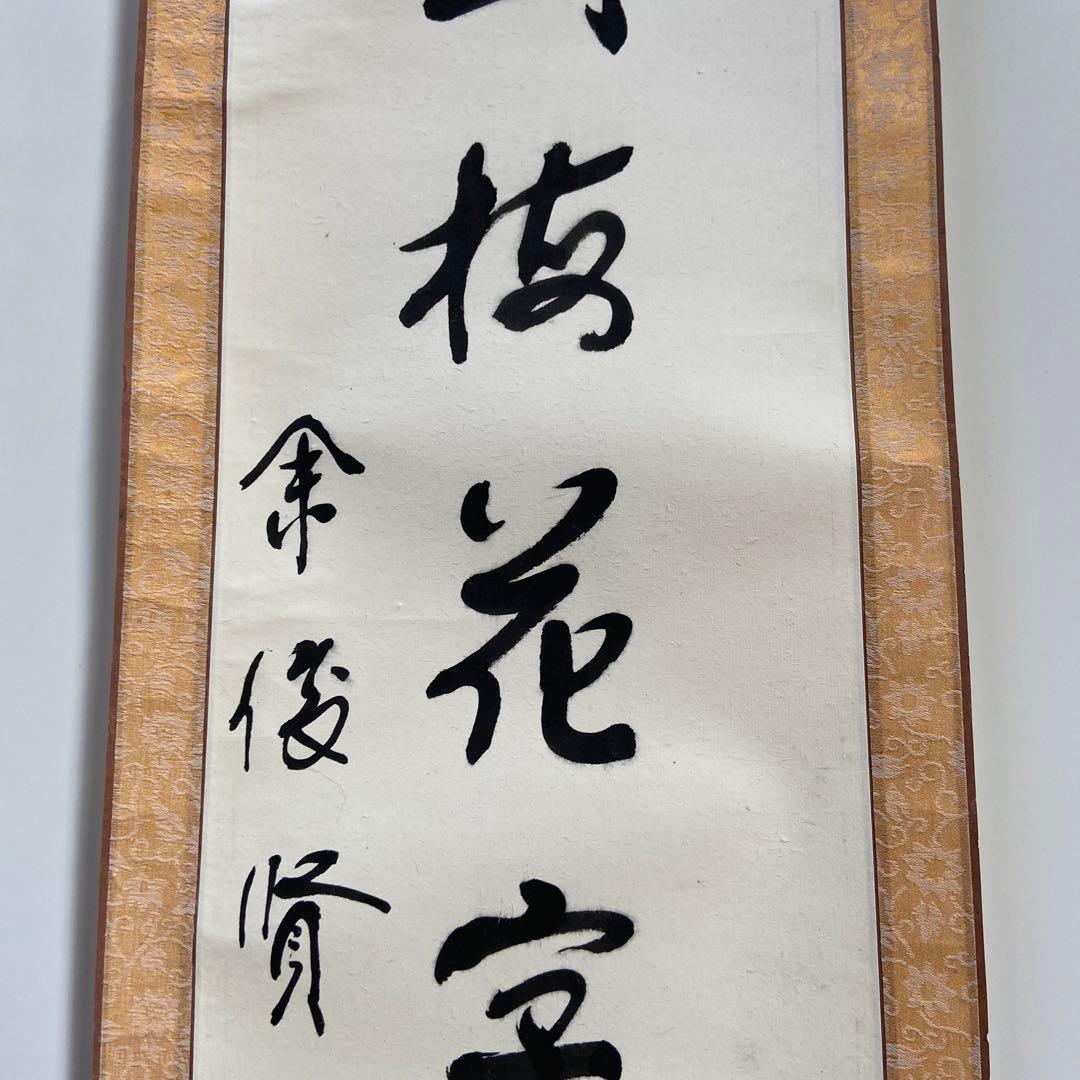 梅花字
余俊賢